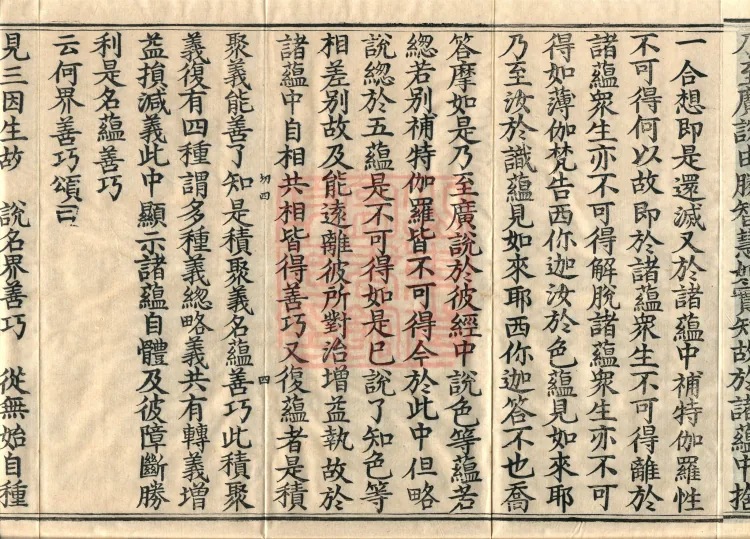 乃至廣說由勝智慧如實知故於諸蘊中捨
一合想即是還滅又於諸蘊中補特伽羅性
不可得何以故即於諸蘊衆生不可得離於
諸蘊衆生亦不可得解脫諸蘊衆生亦不可
得如薄伽梵告西你迦汝於色蘊見如來耶
乃至汝於識蘊見如來耶西你迦答不也喬
答摩如是乃至廣說於彼經中說色等蘊若
緫若別補特伽羅皆不可得今於此中但略
說緫於五蘊是不可得如是已說了知色等
相差別故及能遠離彼所對治增益執故於
諸蘊中自相共相皆得善巧又復蘊者是積
切四
四
聚義能善了知是積聚義名蘊善巧此積聚
義復有四種謂多種義緫略義共有轉義增
益損減義此中顯示諸蘊自體及彼障斷勝
利是名蘊善巧
云何界善巧頌曰
見三因生故 說名界善巧 從無始自種